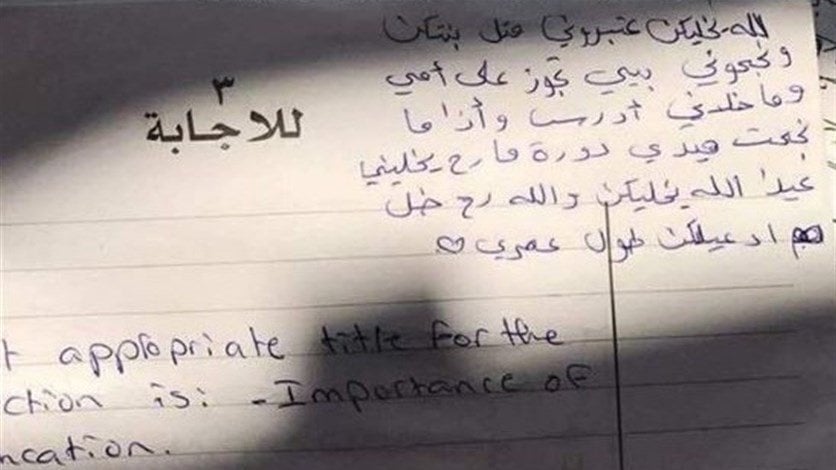 الله يخليكن عتبروني متل بنتكن
ونجحوني بيي تجوز على أمي
وما خلدني أدرس وأذا ما
نجحت هيدي دورة ما رح يخليني
عيدا الله يخليكن والله رح ضل
ادعيلكن طول عمري ♡
٣
للاجابة
t appropriate title for the
ction is: - Importance of
ncation.